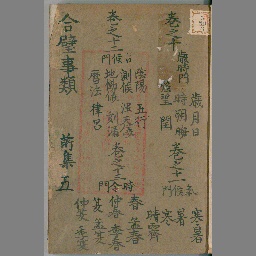 卷之十
歲時門
歲月日
時朔晦
弦望閏
卷之十一
氣候門
寒暑
寒暑
時霽
卷之十二
占候門
陰陽 五行
測候渾天儀
地動儀 刻漏
曆法 律呂
卷之十三
時令門
春 孟春
仲春 季春
夏 孟夏
仲夏 季夏
合璧事類 前集 五